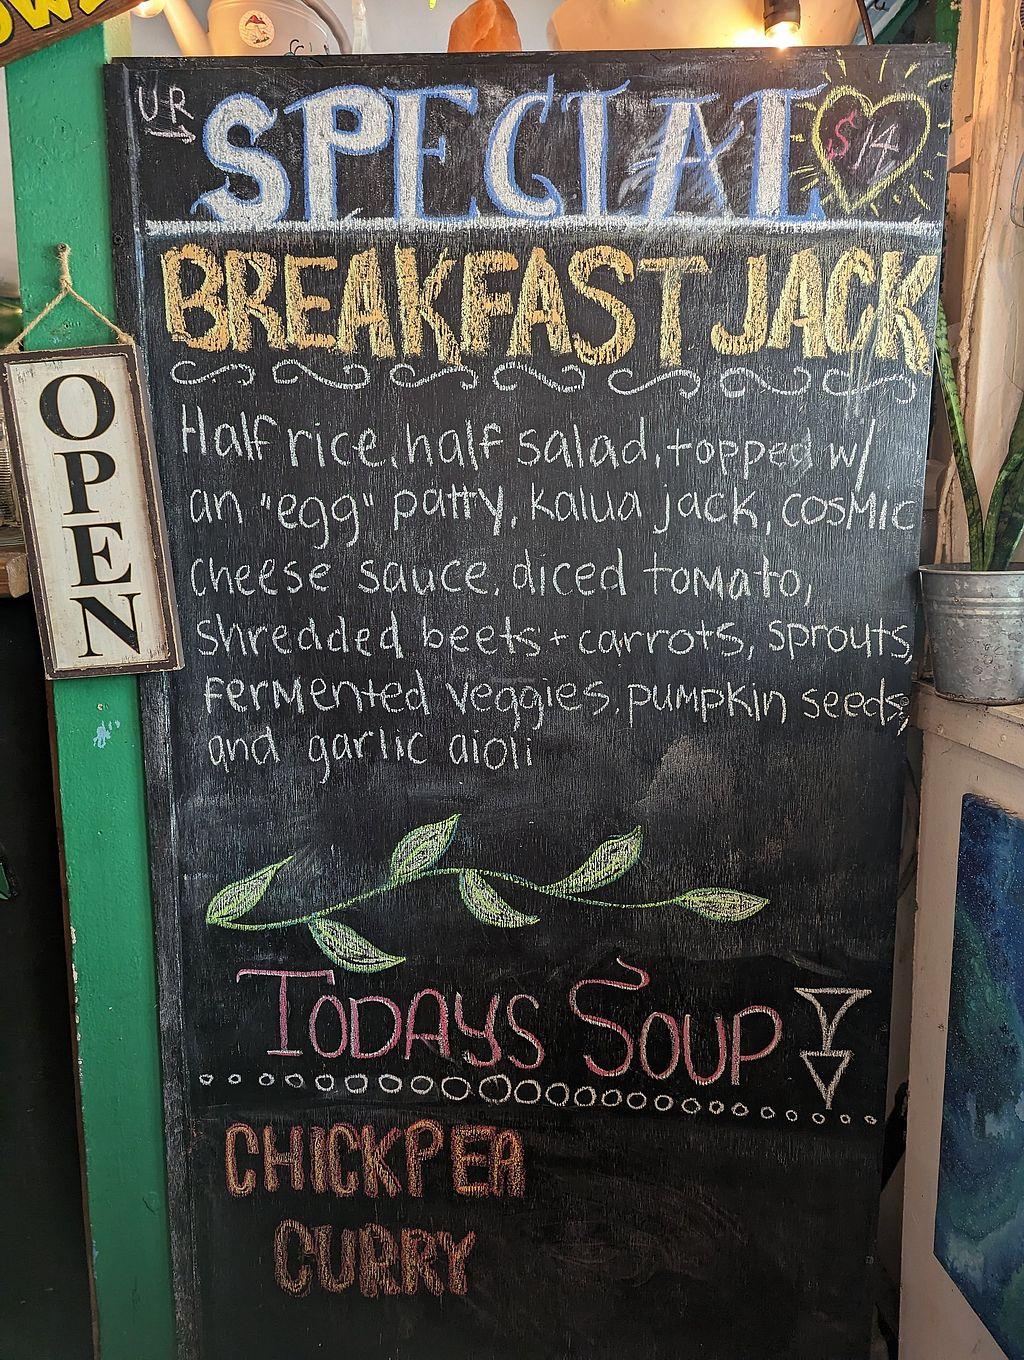 UR SPECIAL $14
BREAKFAST JACK
Half rice, half salad, topped w/
an "egg" patty, kalua jack, cosmic
cheese sauce, diced tomato,
shredded beets + carrots, sprouts,
fermented veggies, pumpkin seeds,
and garlic aioli
TODAYS SOUP
CHICKPEA
CURRY
OPEN